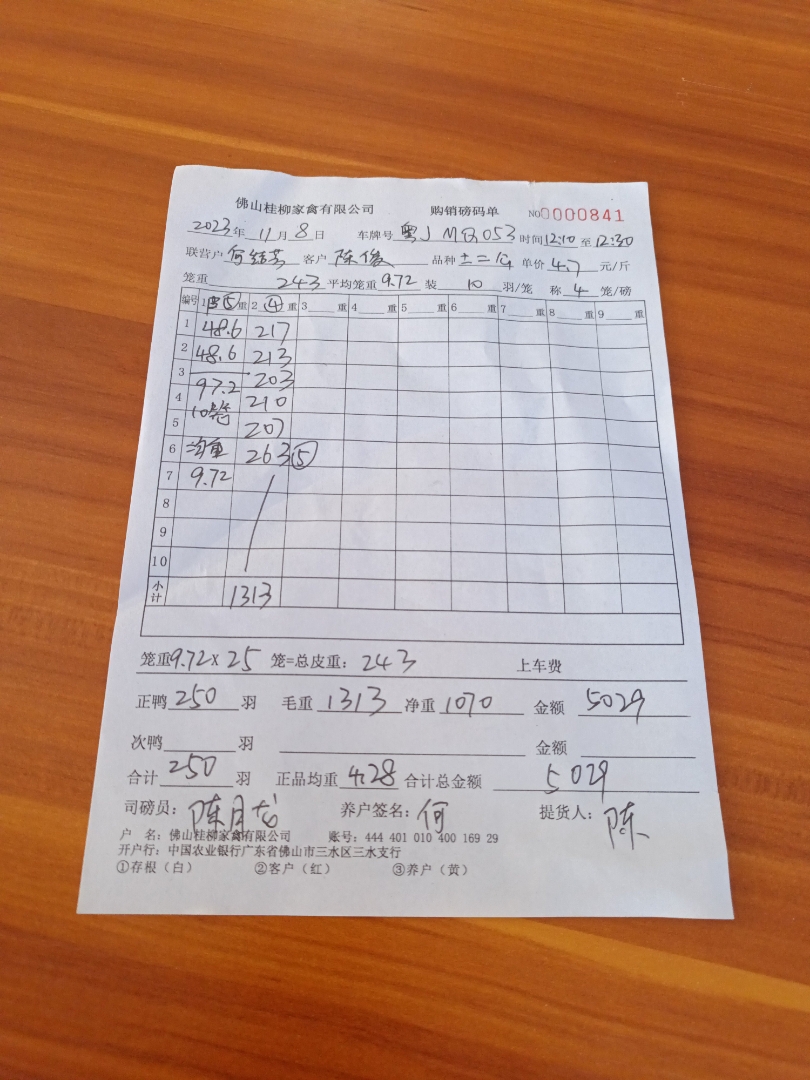 佛山桂柳家禽有限公司 购销磅码单 NO0000841
2023年 11月 8日 车牌号 粤J MQ053 时间12:10 至12:30
联营户 何 客户 陈俊 品种 单价 4.7 元/斤
笼重 243 平均笼重 9.72 装 10 羽/笼 称 4 笼/磅
编号 1皮⑤重 2 ④ 重 3 重 4 重 5 重 6 重 7 重 8 重 9 重
1 48.6 217
2 48.6 213
3 203
97.2
4 210
10笼
5 207
6 均重 263⑤
7 9.72
8
9
10
小计 1313
笼重9.72× 25 笼=总皮重: 243 上车费
正鸭 250 羽 毛重 1313 净重 1070 金额 5029
次鸭 羽 金额
合计 250 羽 正品均重 4.28 合计总金额 5029
司磅员: 陈月龙 养户签名: 何 提货人: 陈
户 名: 佛山桂柳家禽有限公司 账号: 444 401 010 400 169 29
开户行: 中国农业银行广东省佛山市三水区三水支行
①存根(白) ②客户(红) ③养户(黄)